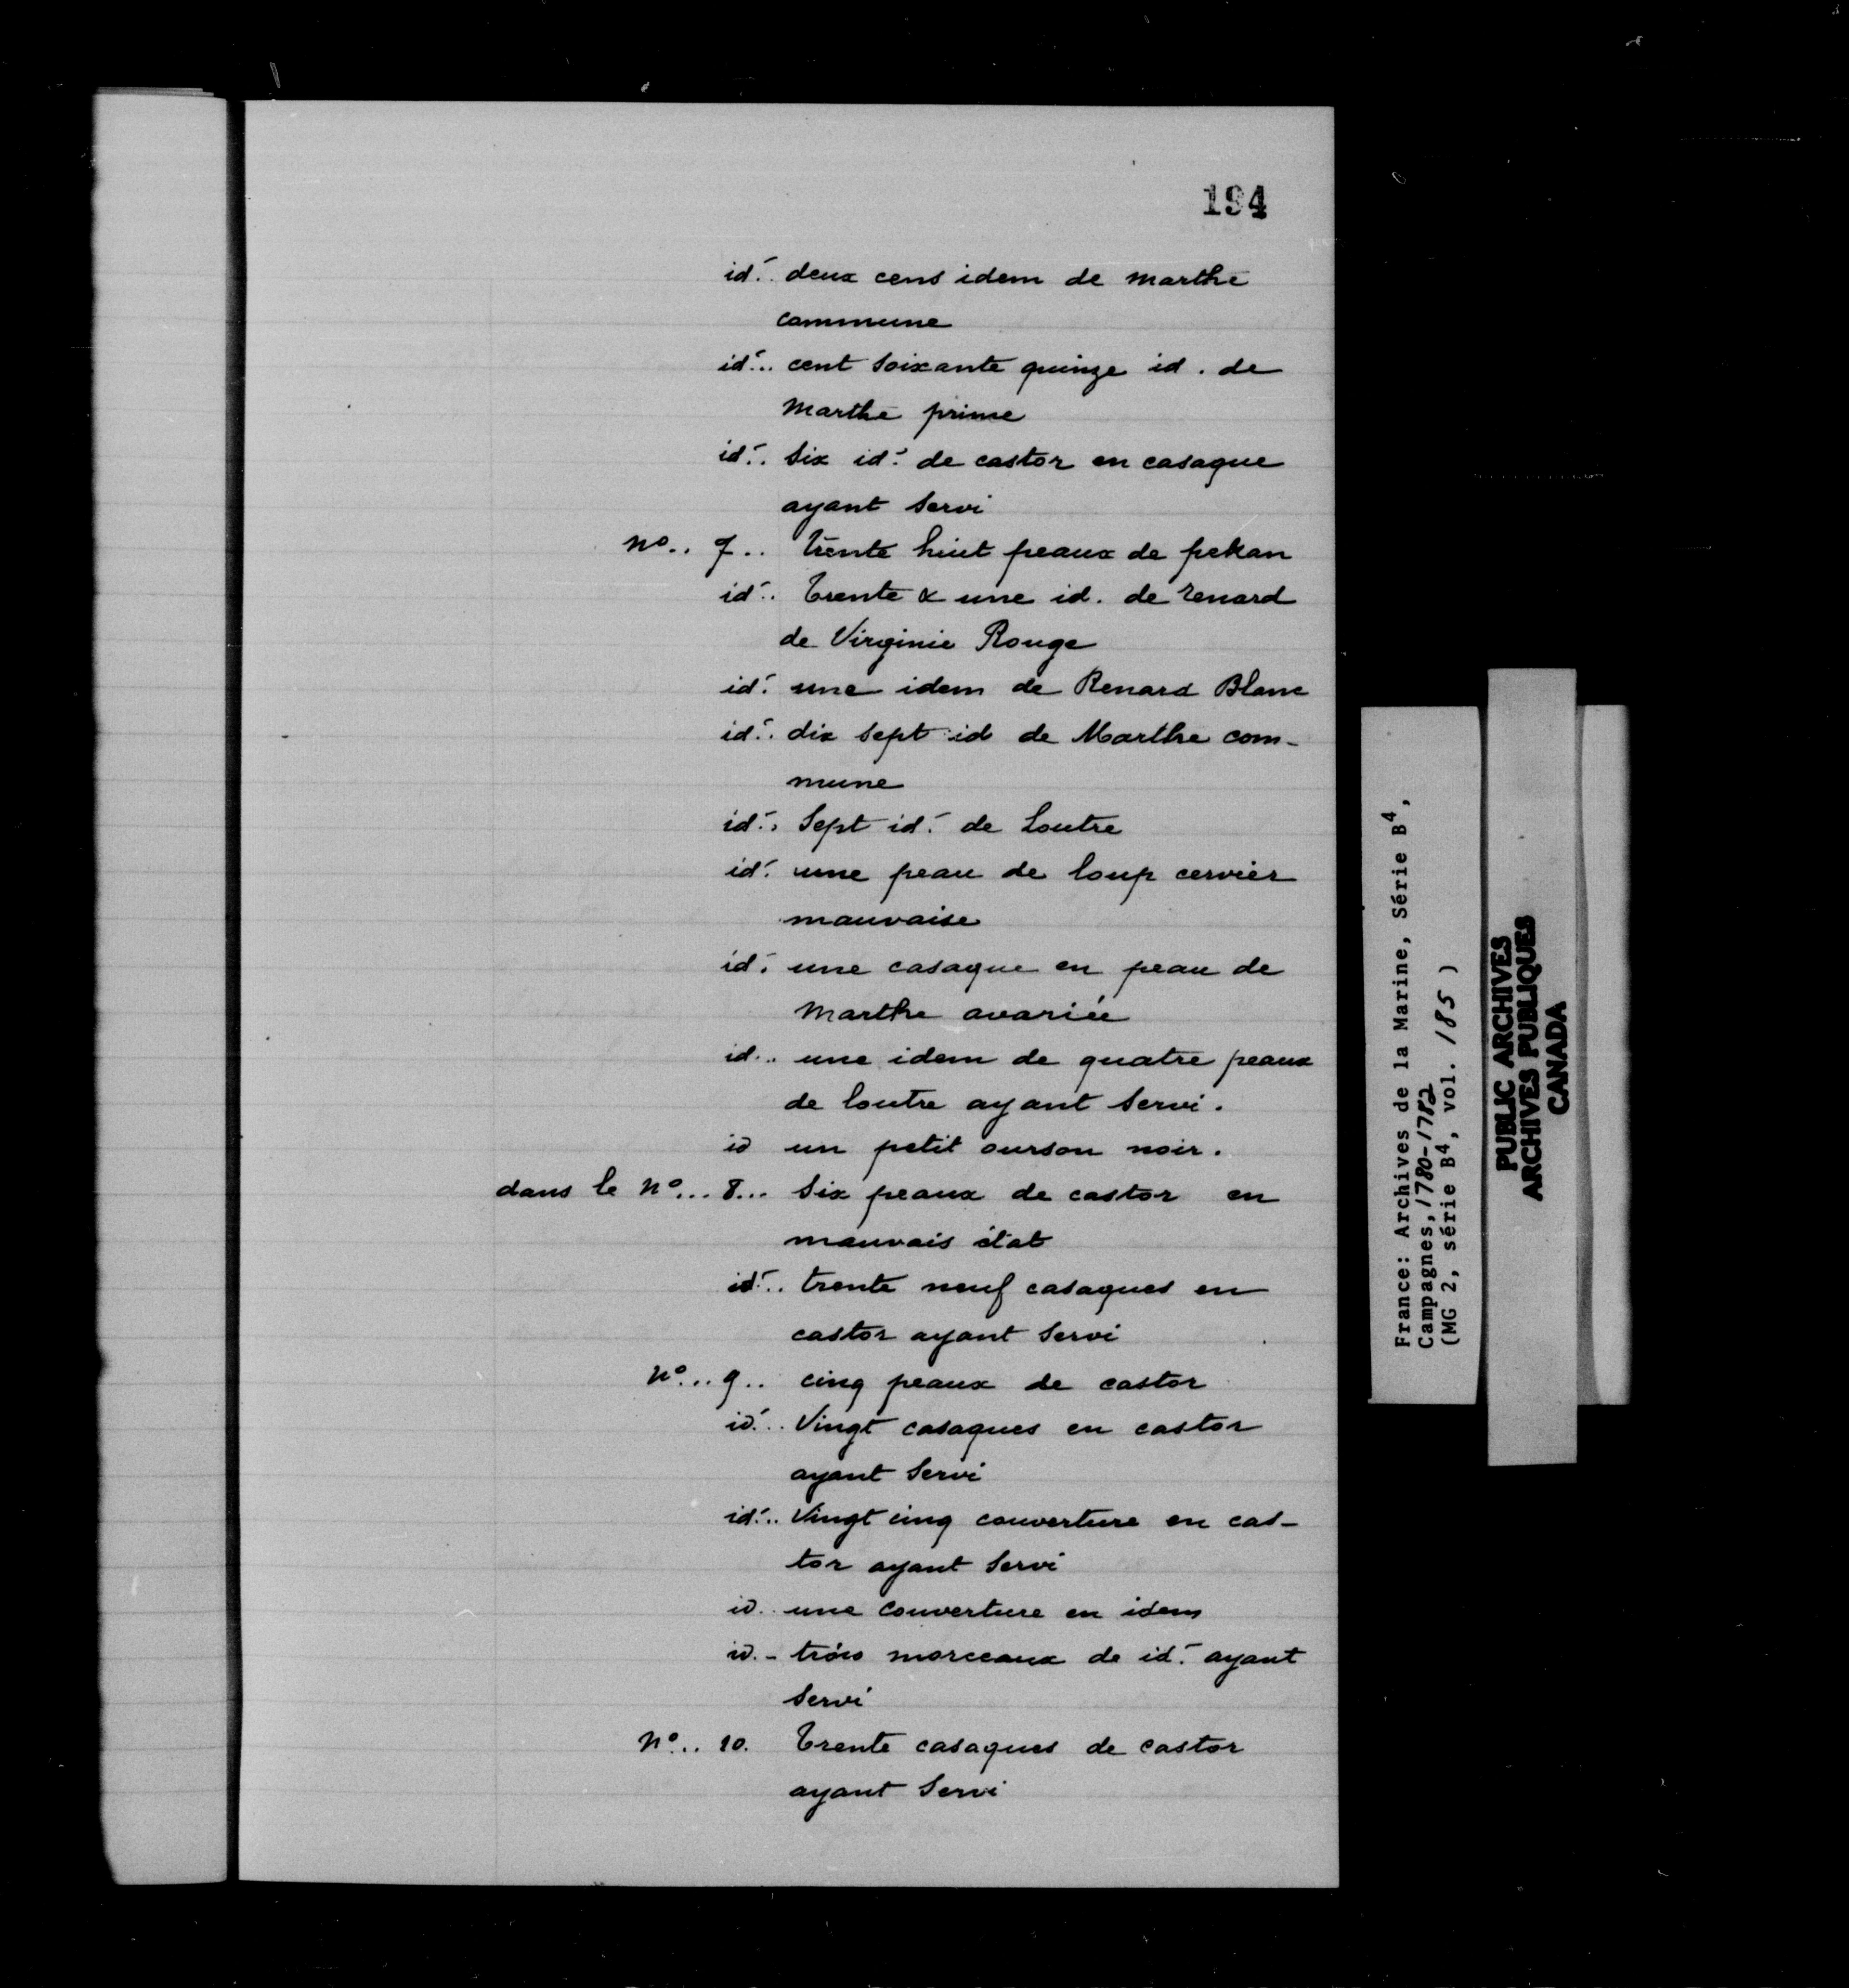 194
id. deux cens idem de marthe
commune
id... cent soixante quinze id. de
marthe prime
id.. six id. de castor en casaque
ayant servi
no.. 7.. trente huit peaux de pekan
id.. Trente & une id. de renard
de Virginie Rouge
id. une idem de Renard Blanc
id.. dix sept id de Marthe com-
mune
id.. sept id. de loutre
id. une peau de loup cervier
mauvaise
id. une casaque en peau de
marthe avariée
id.. une idem de quatre peaux
de loutre ayant servi.
id un petit ourson noir.
dans le no... 8... six peaux de castor en
mauvais état
id.. trente neuf casaques en
castor ayant servi
no... 9.. cinq peaux de castor
id... Vingt casaques en castor
ayant servi
id... Vingt cinq couverture en cas-
tor ayant servi
id.. une couverture en idem
id.- trois morceaux de id. ayant
servi
no... 10. Trente casaques de castor
ayant servi
France: Archives de la Marine, Série B4,
Campagnes, 1780-1782
(MG 2, série B4, vol. 185)
PUBLIC ARCHIVES
ARCHIVES PUBLIQUES
CANADA